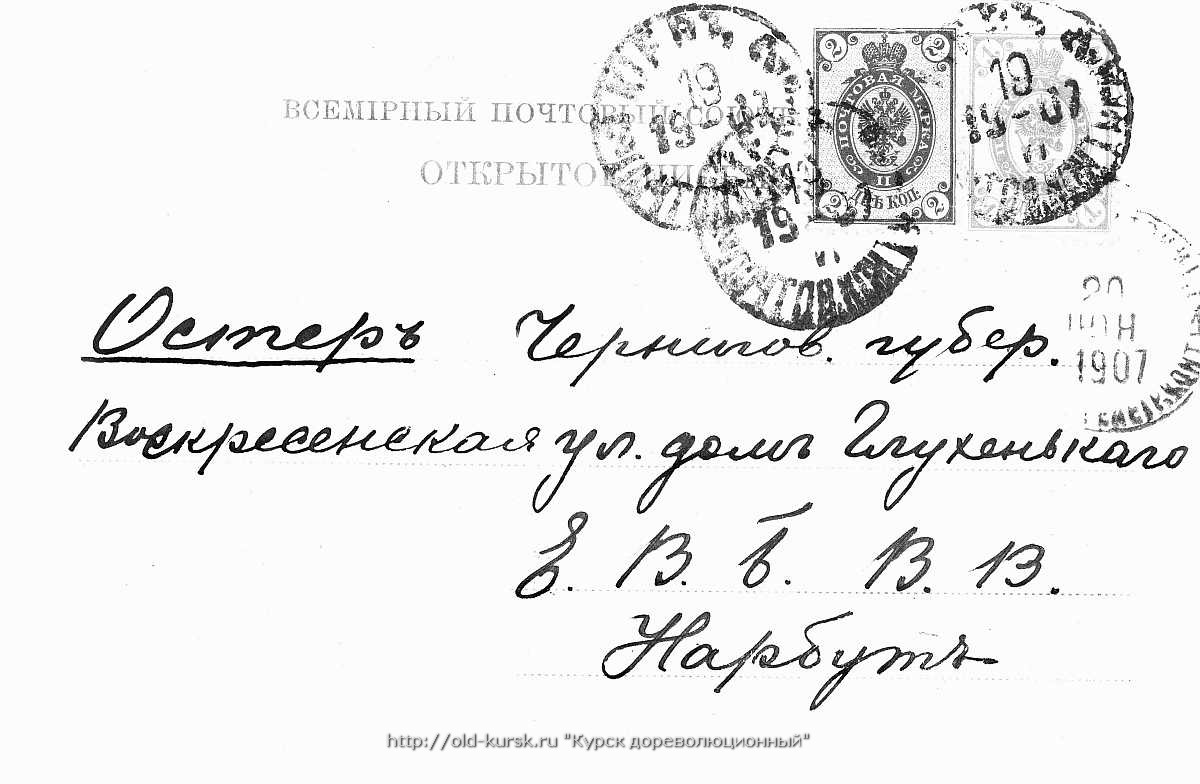 ВСЕМІРНЫЙ ПОЧТОВЫЙ СОЮЗЪ
ОТКРЫТОЕ ПИСЬМО
2 2
ПОЧТОВАЯ МАРКА
ДВѢ КОП.
2 2
19
19-07
19
19-07
VI
19
VI
20
ІЮН
1907
Остеръ Чернигов. губер.
Воскресенская ул. домъ Глухенькаго
Е. В. Б. В. В.
Нарбутъ
http://old-kursk.ru "Курск дореволюционный"